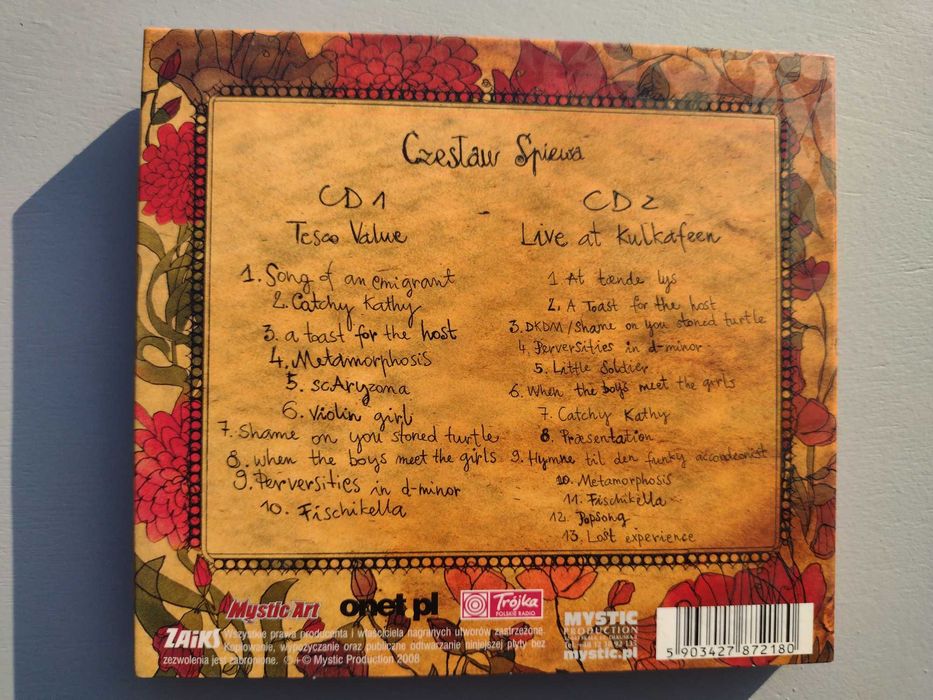 Czesław Śpiewa
CD 1
Tesco Value
1. Song of an emigrant
2. Catchy Kathy
3. a toast for the host
4. Metamorphosis
5. scAryzona
6. violin girl
7. Shame on you stoned turtle
8. when the boys meet the girls
9. Perversities in d-minor
10. Fischikella
CD 2
Live at Kulkafeen
1. At tænde lys
2. A Toast for the host
3. DKDM/Shame on you stoned turtle
4. Perversities in d-minor
5. Little Soldier
6. When the boys meet the girls
7. Catchy Kathy
8. Præsentation
9. Hymne til den funky accordeonist
10. Metamorphosis
11. Fischikella
12. Popsong
13. Lost experience
Mystic Art
onet pl
Trójka
POLSKIE RADIO
MYSTIC
PRODUCTION
mystic.pl
ZAiKS
Wszystkie prawa producenta i właściciela nagranych utworów zastrzeżone.
Kopiowanie, wypożyczanie oraz publiczne odtwarzanie niniejszej płyty bez
zezwolenia jest zabronione. ℗ + © Mystic Production 2008
5 903427 872180